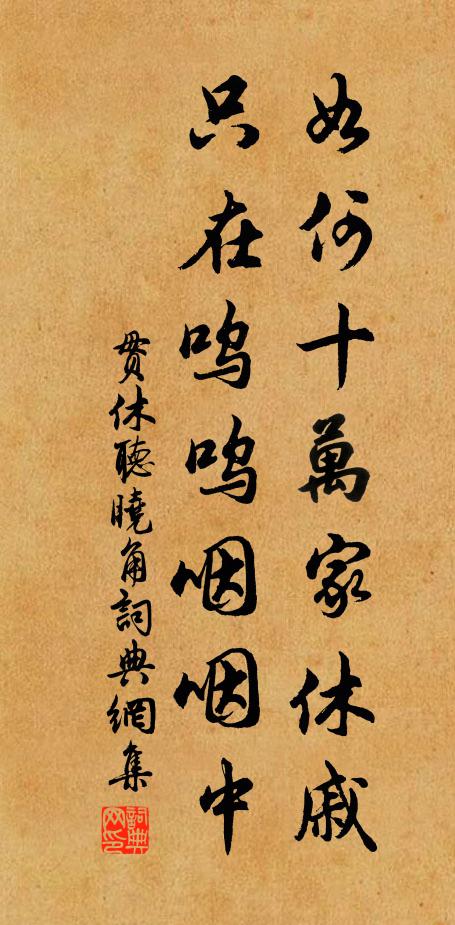 如何十萬家休戚
只在嗚嗚咽咽中
貫休聽曉角詞典網集
詞典网印